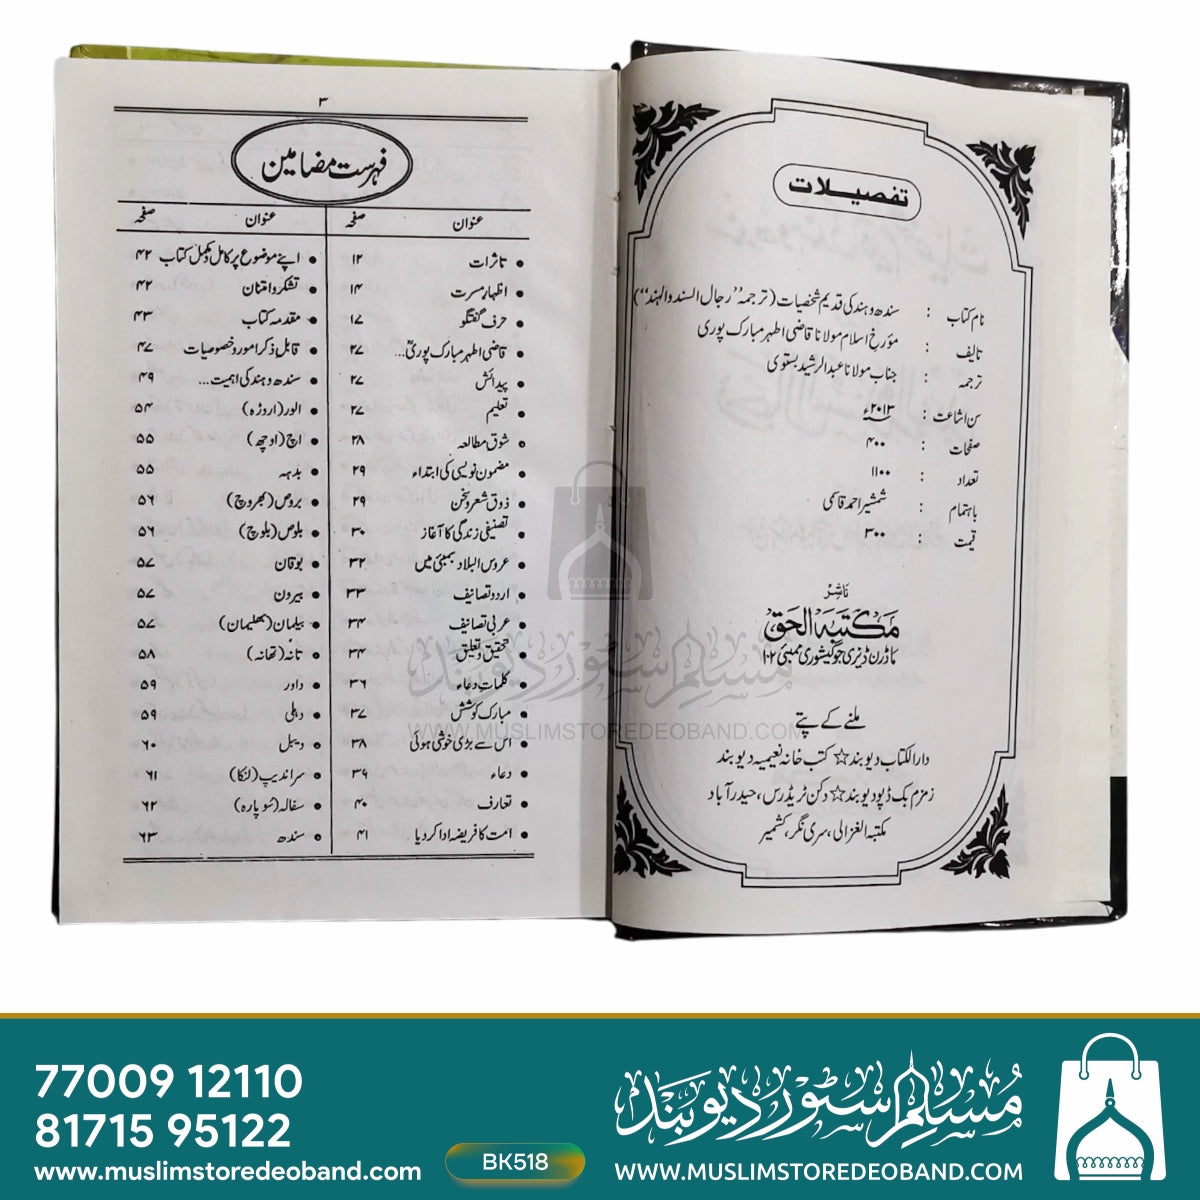 تفصیلات
نام کتاب : سندھ و ہند کی قدیم شخصیات (ترجمہ "رجال السند والہند")
تالیف : مؤرخ اسلام مولانا قاضی اطہر مبارک پوری
ترجمہ : جناب مولانا عبدالرشید بستوی
سن اشاعت : ۲۰۱۳ء
صفحات : ۴۰۰
تعداد : ۱۱۰۰
باہتمام : شمشیر احمد قاسمی
قیمت : ۳۰۰
ناشر
مکتبہ الحق
ماڈرن ڈیری جوگیشوری ممبئی ۱۰۲
ملنے کے پتے
دارالکتاب دیوبند ☆ کتب خانہ نعیمیہ دیوبند
زمزم بک ڈپو دیوبند ☆ دکن ٹریڈرس، حیدرآباد
مکتبہ الغزالی، سری نگر، کشمیر
۳
فہرست مضامین
عنوان صفحہ
• تاثرات ۱۲
• اظہار مسرت ۱۴
• حرف گفتگو ۱۷
• قاضی اطہر مبارک پوریؒ... ۲۷
• پیدائش ۲۷
• تعلیم ۲۷
• شوق مطالعہ ۲۸
• مضمون نویسی کی ابتداء ۲۹
• ذوق شعر و سخن ۲۹
• تصنیفی زندگی کا آغاز ۳۰
• عروس البلاد بمبئی میں ۳۲
• اردو تصانیف ۳۳
• عربی تصانیف ۳۴
• تحقیق و تعلیق ۳۴
• کلمات دعاء ۳۶
• مبارک کوشش ۳۷
• اس سے بڑی خوشی ہوئی ۳۸
• دعاء ۳۹
• تعارف ۴۰
• امت کا فریضہ ادا کردیا ۴۱
عنوان صفحہ
• اپنے موضوع پر کامل و مکمل کتاب ۴۲
• تشکر و امتنان ۴۲
• مقدمہ کتاب ۴۳
• قابل ذکر امور و خصوصیات ۴۷
• سندھ و ہند کی اہمیت... ۴۹
• الور (اروڑہ) ۵۴
• اچ (اوچھ) ۵۵
• بدہہ ۵۵
• بروص (بھروچ) ۵۶
• بلوص (بلوچ) ۵۶
• بوقان ۵۷
• بیرون ۵۷
• بیلمان (بھلیمان) ۵۷
• تانہ (تھانہ) ۵۸
• داور ۵۹
• دہلی ۵۹
• دیبل ۶۰
• سراندیپ (لنکا) ۶۱
• سفالہ (سوپارہ) ۶۲
• سندھ ۶۳
مسلم سٹور دیوبند
WWW.MUSLIMSTOREDEOBAND.COM
77009 12110
81715 95122
www.muslimstoredeoband.com
BK518
مسلم سٹور دیوبند
WWW.MUSLIMSTOREDEOBAND.COM